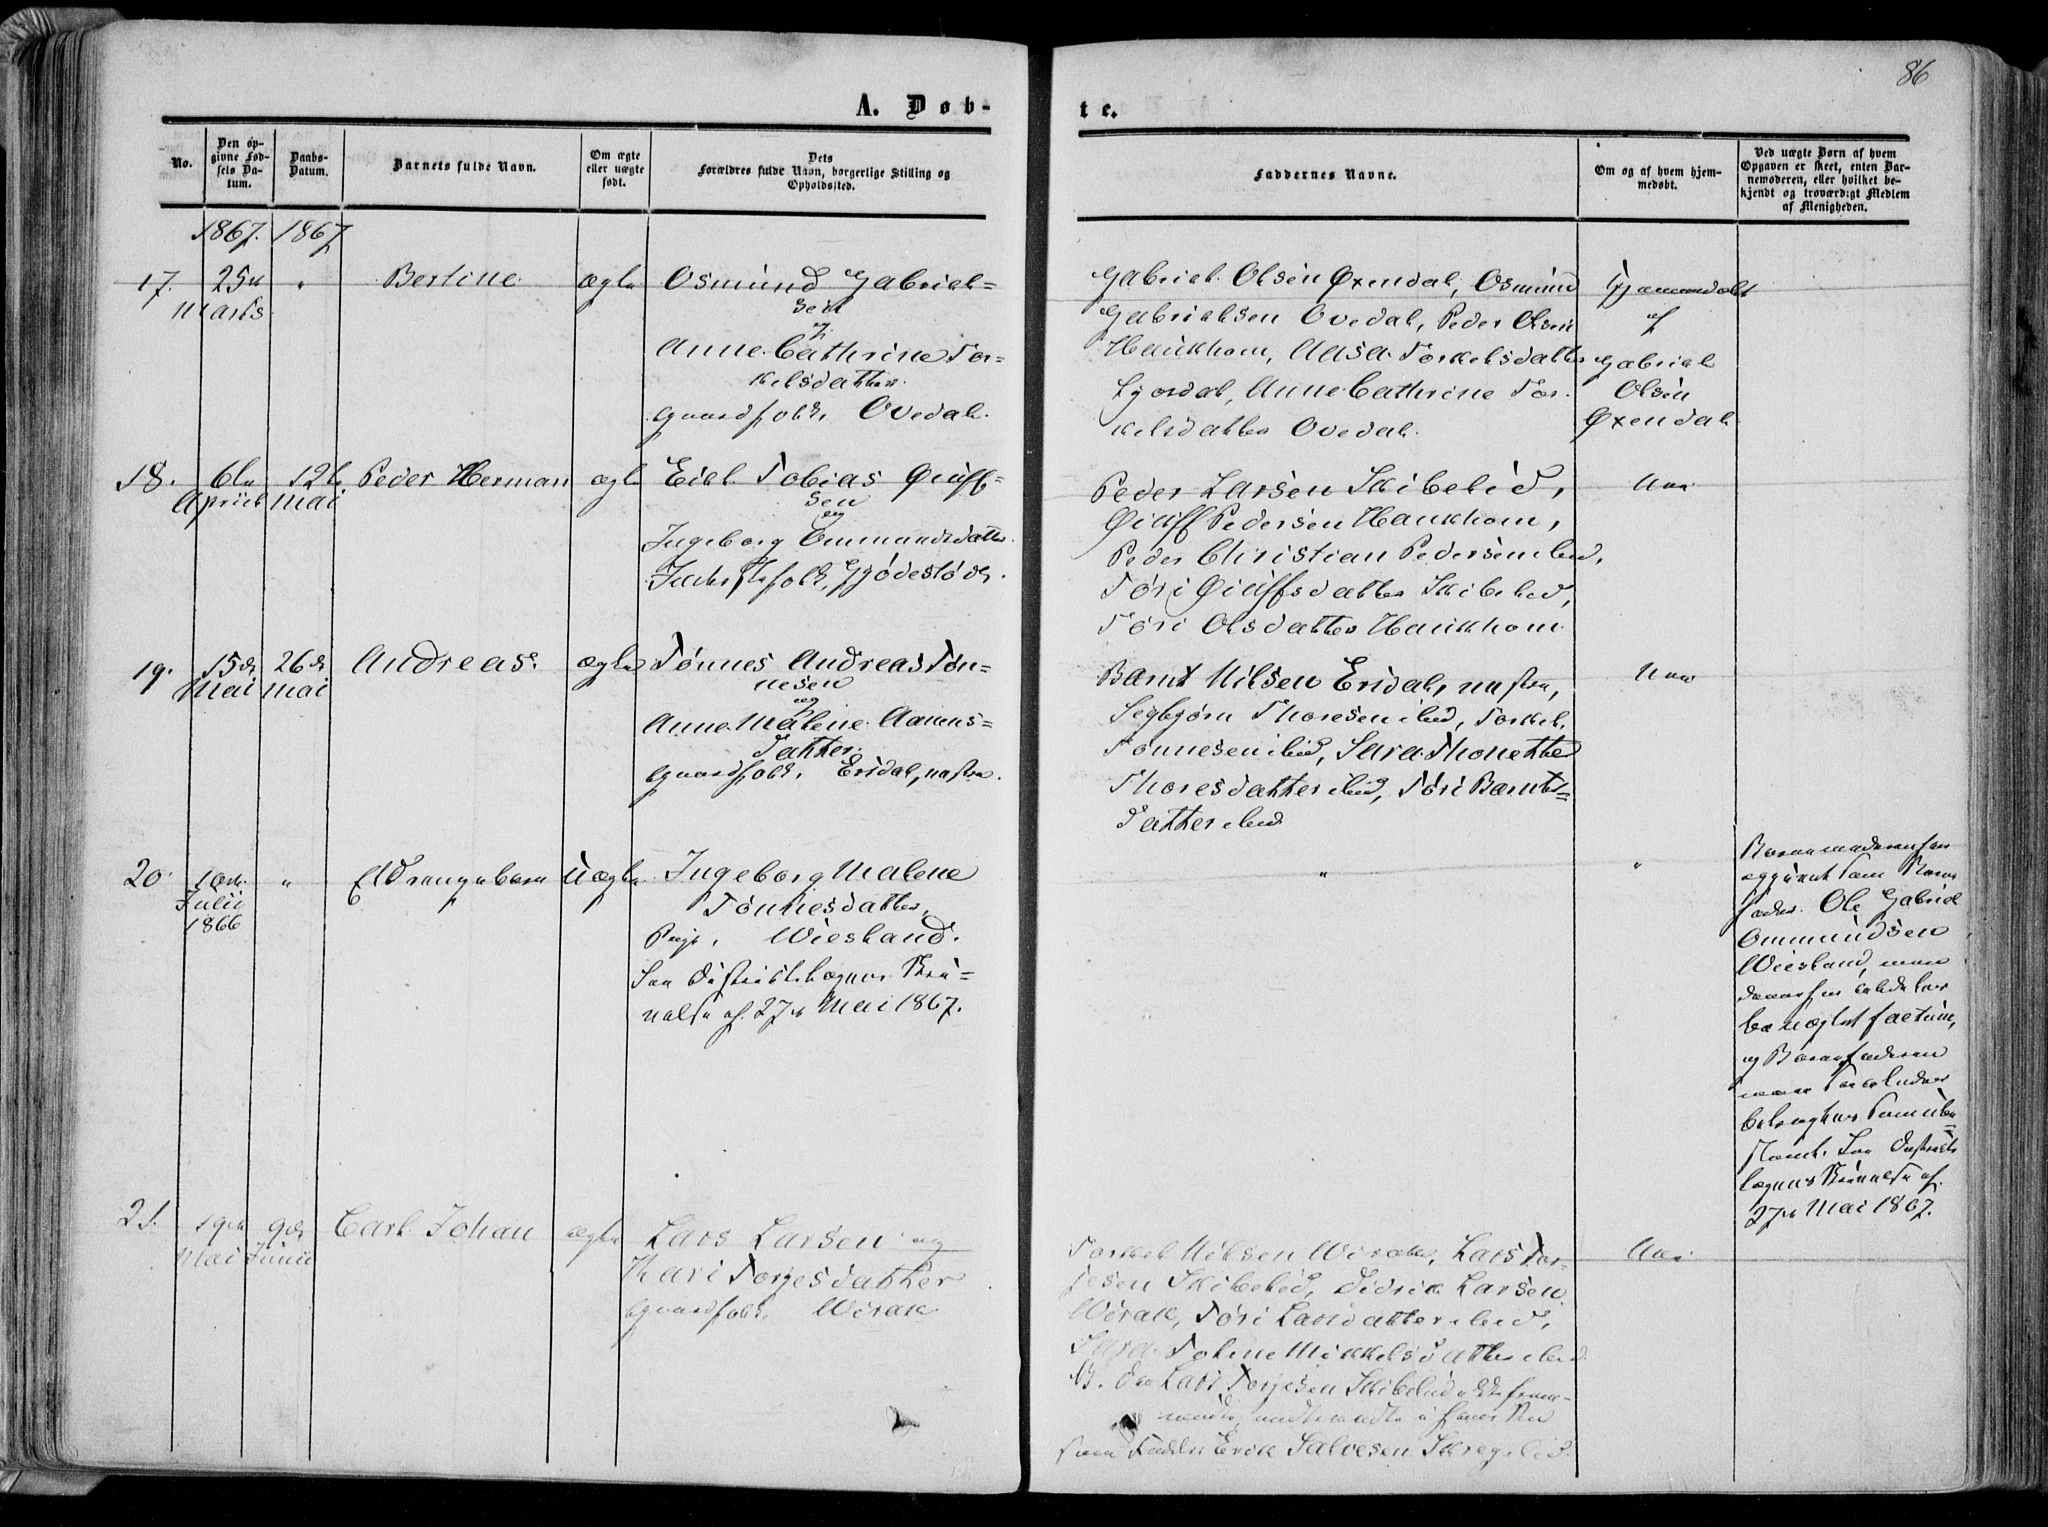 86
A. Døb-
te.
No.
Den op-
givne Fød-
sels Da-
tum.
Daabs-
Datum.
Barnets fulde Navn.
Om ægte
eller uægte
født.
Dets
Forældres fulde Navn, borgerlige Stilling og
Opholdssted.
Faddernes Navne.
Om og af hvem hjem-
medøbt.
Ved uægte Børn af hvem
Opgaven er skeet, enten Bar-
nemoderen, eller hvilket be-
kjendt og troværdigt Medlem
af Menigheden.
1867. 1867
17.
25de
Marts
"
Bertine
ægte
Osmund Gabriel=
sen
og
Anne Cathrine Tor=
kelsdatter
Gaardfolk, Ovedal.
Gabriel Olsen Øxendal, Osmund
Gabrielsen Ovedal, Peder Olsen
Haukhom, Aasa Torkelsdatter
Lyordal, Anne Cathrine Tor-
kelsdatter Ovedal.
Hjemmedøbt
af
Gabriel
Olsen
Øxendal
18.
6te
April
12te
Mai
Peder Herman
ægte
Eiel Tobias Øiuff=
sen
og
Ingeborg Ommundsdatter
Inderstfolk, Gjødestøds.
Peder Larsen Skibelid,
Øiuff Pedersen Haukhom,
Peder Christian Pedersen ibid,
Tøri Øiuffsdatter Skibelid,
Tøri Olsdatter Haukhom
Nei
19.
15de
Mai
26de
Mai
Andreas.
ægte
Tønnes Andreas Tøn=
nesen
og
Anne Malene Aanens=
datter
Gaardfolk, Eisdal, nestre.
Bernt Nilsen Eisdal, nestre,
Segbjørn Thoresen ibid, Torkel
Tønnesen ibid, Sara Thonette
Thoresdatter ibid, Tøri Bernts=
datter ibid
Nei
20.
10de
Julii
1866
"
Et Drengebarn
Uægte
Ingeborg Malene
Tønnesdatter,
Pige, Wiesland.
Saa Distriktslægens Skri=
velse af 27de Mai 1867.
"
"
Barnemoderen har
opgivet som Barne
fader Ole Gabriel
Ommundsen
Wiesland, men
denne har
benægtet factum,
og Barnefaderen
Saa Distrikts
lægens Skrivelse af
27de Mai 1867.
21.
19de
Mai
9de
Junii
Carl Johan
ægte
Lars Larsen og
Kari Torjesdatter
Gaardfolk, Wirak
Torkel Nilsen Wirak, Lars Tor=
jesen Skibelid, Didrik Larsen
Wirak, Tøri Larsdatter ibid,
Sara Toline Mikkelsdatter ibid.
Da Lars Torjesen Skibelid ikke frem=
mødte, i hans Sted
som Fadder Erik Salvesen Skregelid.
Nei